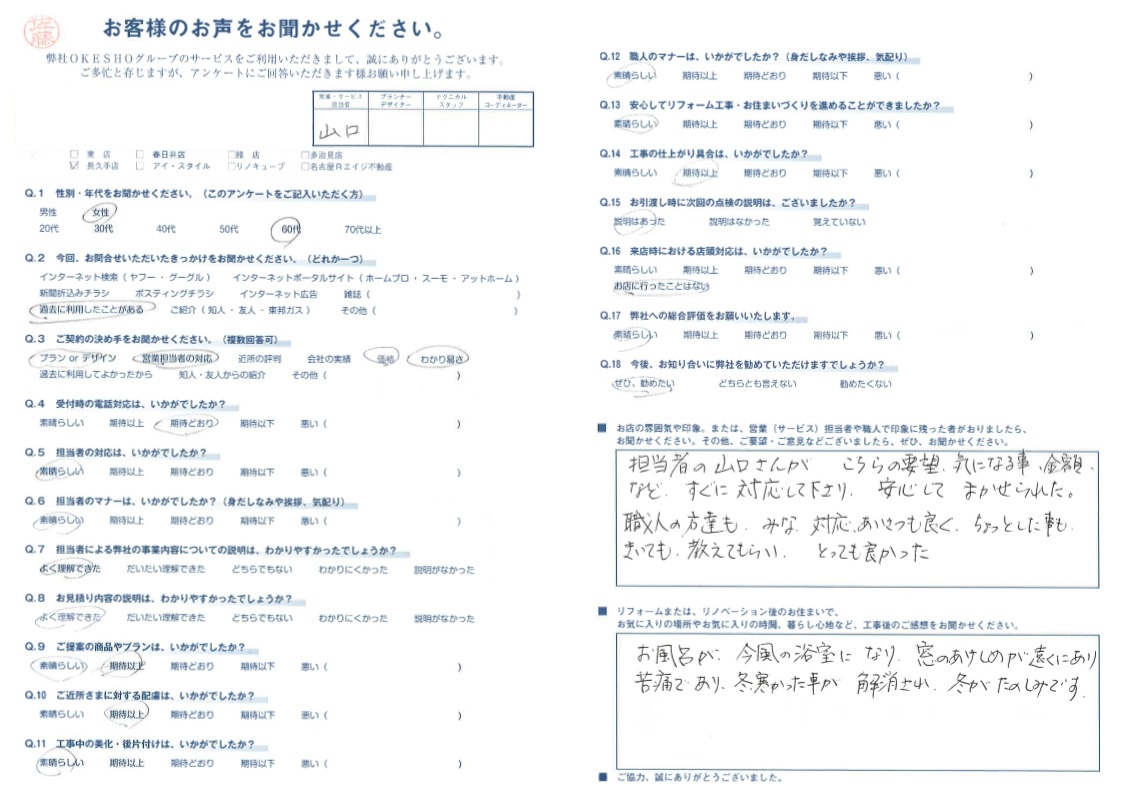 佐藤
お客様のお声をお聞かせください。
弊社OKESHOグループのサービスをご利用いただきまして、誠にありがとうございます。
ご多忙と存じますが、アンケートにご回答いただきます様お願い申し上げます。
営業・サービス担当者 プランナーデザイナー テクニカルスタッフ 不動産コーディネーター
山口
□ 東 店 □ 春日井店 □緑 店 □多治見店
☑ 長久手店 □ アイ・スタイル □リノキューブ □名古屋Rエイジ不動産
Q.1 性別・年代をお聞かせください。（このアンケートをご記入いただく方）
男性 女性
20代 30代 40代 50代 60代 70代以上
Q.2 今回、お問合せいただいたきっかけをお聞かせください。（どれか一つ）
インターネット検索（ ヤフー ・ グーグル ） インターネットポータルサイト（ ホームプロ ・ スーモ ・ アットホーム ）
新聞折込みチラシ ポスティングチラシ インターネット広告 雑誌（ ）
過去に利用したことがある ご紹介（ 知人 ・ 友人 ・ 東邦ガス ） その他（ ）
Q.3 ご契約の決め手をお聞かせください。（複数回答可）
プラン or デザイン 営業担当者の対応 近所の評判 会社の実績 価格 わかり易さ
過去に利用してよかったから 知人・友人からの紹介 その他（ ）
Q.4 受付時の電話対応は、いかがでしたか？
素晴らしい 期待以上 期待どおり 期待以下 悪い（ ）
Q.5 担当者の対応は、いかがでしたか？
素晴らしい 期待以上 期待どおり 期待以下 悪い（ ）
Q.6 担当者のマナーは、いかがでしたか？（身だしなみや挨拶、気配り）
素晴らしい 期待以上 期待どおり 期待以下 悪い（ ）
Q.7 担当者による弊社の事業内容についての説明は、わかりやすかったでしょうか？
よく理解できた だいたい理解できた どちらでもない わかりにくかった 説明がなかった
Q.8 お見積り内容の説明は、わかりやすかったでしょうか？
よく理解できた だいたい理解できた どちらでもない わかりにくかった 説明がなかった
Q.9 ご提案の商品やプランは、いかがでしたか？
素晴らしい 期待以上 期待どおり 期待以下 悪い（ ）
Q.10 ご近所さまに対する配慮は、いかがでしたか？
素晴らしい 期待以上 期待どおり 期待以下 悪い（ ）
Q.11 工事中の美化・後片付けは、いかがでしたか？
素晴らしい 期待以上 期待どおり 期待以下 悪い（ ）
Q.12 職人のマナーは、いかがでしたか？（身だしなみや挨拶、気配り）
素晴らしい 期待以上 期待どおり 期待以下 悪い（ ）
Q.13 安心してリフォーム工事・お住まいづくりを進めることができましたか？
素晴らしい 期待以上 期待どおり 期待以下 悪い（ ）
Q.14 工事の仕上がり具合は、いかがでしたか？
素晴らしい 期待以上 期待どおり 期待以下 悪い（ ）
Q.15 お引渡し時に次回の点検の説明は、ございましたか？
説明はあった 説明はなかった 覚えていない
Q.16 来店時における店頭対応は、いかがでしたか？
素晴らしい 期待以上 期待どおり 期待以下 悪い（ ）
お店に行ったことはない
Q.17 弊社への総合評価をお願いいたします。
素晴らしい 期待以上 期待どおり 期待以下 悪い（ ）
Q.18 今後、お知り合いに弊社を勧めていただけますでしょうか？
ぜひ、勧めたい どちらとも言えない 勧めたくない
■ お店の雰囲気や印象。または、営業（サービス）担当者や職人で印象に残った者がおりましたら、
お聞かせください。その他、ご要望・ご意見などございましたら、ぜひ、お聞かせください。
担当者の山口さんが こちらの要望、気になる事、金額、
など、すぐに対応して下さり、安心して まかせられた。
職人の方達も、みな、対応、あいさつも良く、ちょっとした事も、
きいても、教えてもらい、とっても良かった
■ リフォームまたは、リノベーション後のお住まいで、
お気に入りの場所やお気に入りの時間、暮らし心地など、工事後のご感想をお聞かせください。
お風呂が、今風の浴室になり、窓のあけしめが遠くにあり
苦痛であり、冬寒かった事が 解消され、冬がたのしみです。
■ ご協力、誠にありがとうございました。